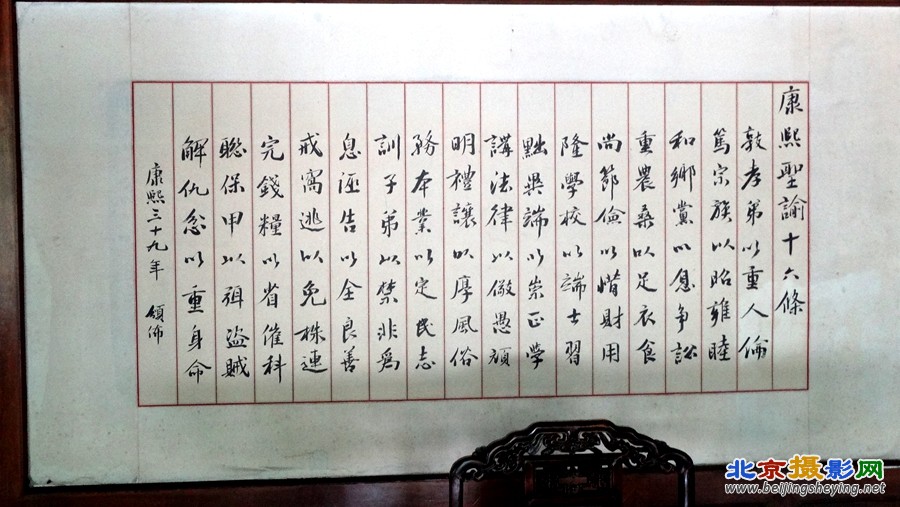 康熙聖諭十六條
敦孝弟以重人倫
篤宗族以昭雍睦
和鄉黨以息争訟
重農桑以足衣食
尚節儉以惜財用
隆學校以端士習
黜異端以崇正學
講法律以儆愚頑
明禮讓以厚風俗
務本業以定民志
訓子弟以禁非為
息誣告以全良善
戒窩逃以免株連
完錢糧以省催科
聮保甲以弭盜賊
解仇忿以重身命
康熙三十九年 頒佈
北京摄影网
www.beijingsheying.net